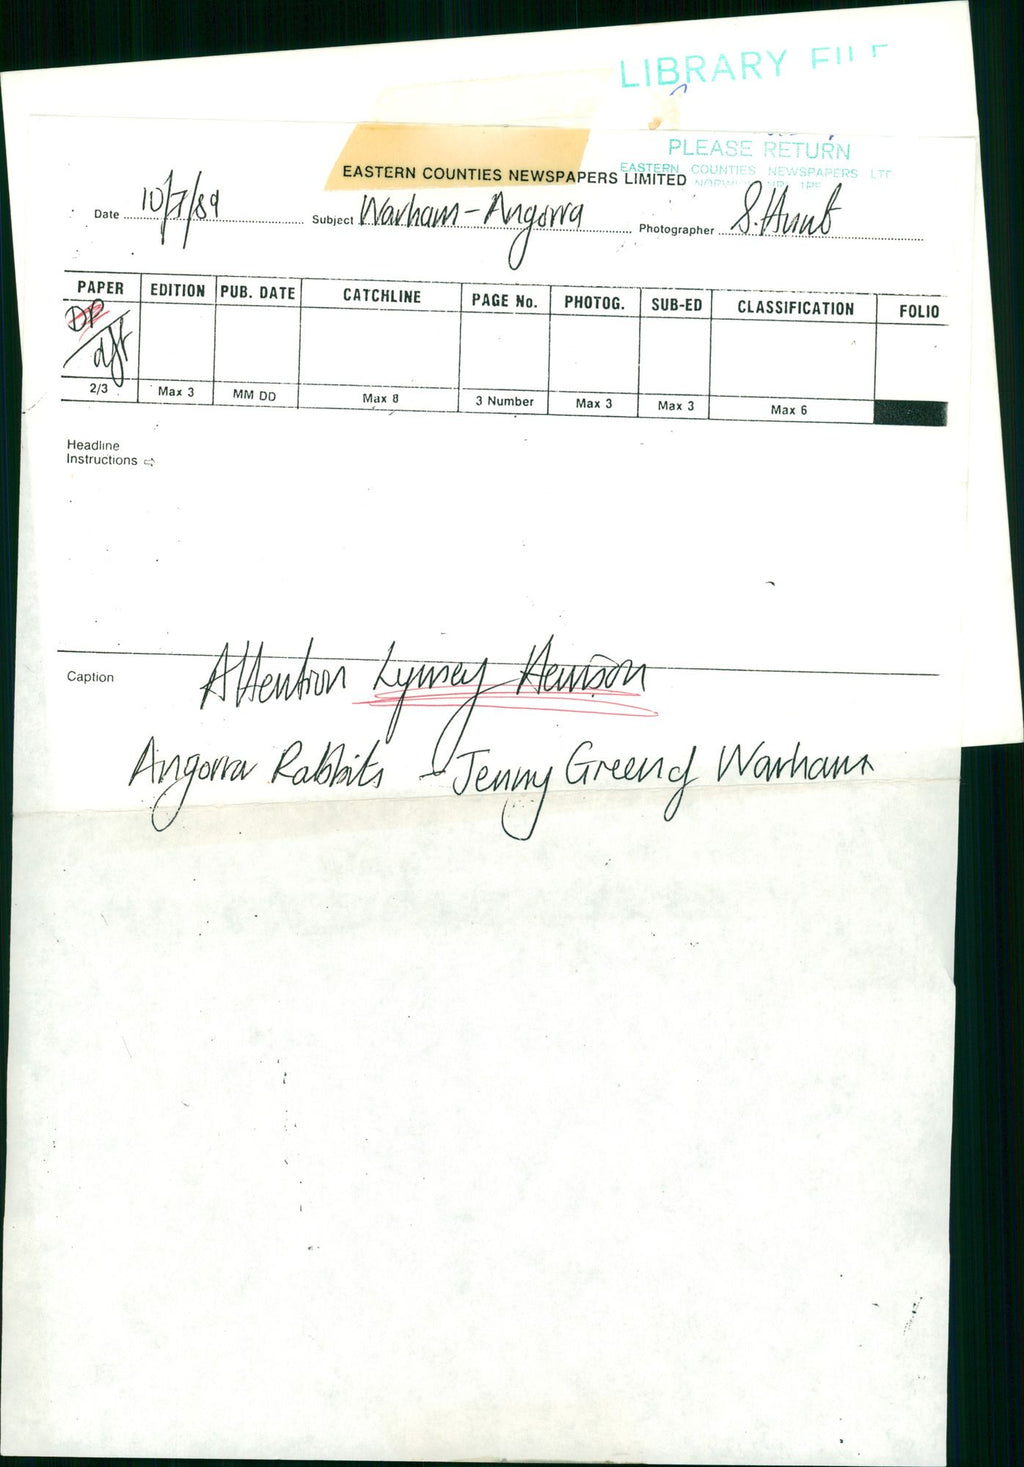 LIBRARY FILE
PLEASE RETURN
EASTERN COUNTIES NEWSPAPERS LTD
EASTERN COUNTIES NEWSPAPERS LIMITED
Date 10/7/89 Subject Warham - Angorra Photographer S. Hunt
PAPER EDITION PUB. DATE CATCHLINE PAGE No. PHOTOG. SUB-ED CLASSIFICATION FOLIO
DP
2/3 Max 3 MM DD Max 8 3 Number Max 3 Max 3 Max 6
Headline
Instructions ⇨
Caption
Attention Lynsey Hewison
Angorra Rabbits - Jenny Green of Warham